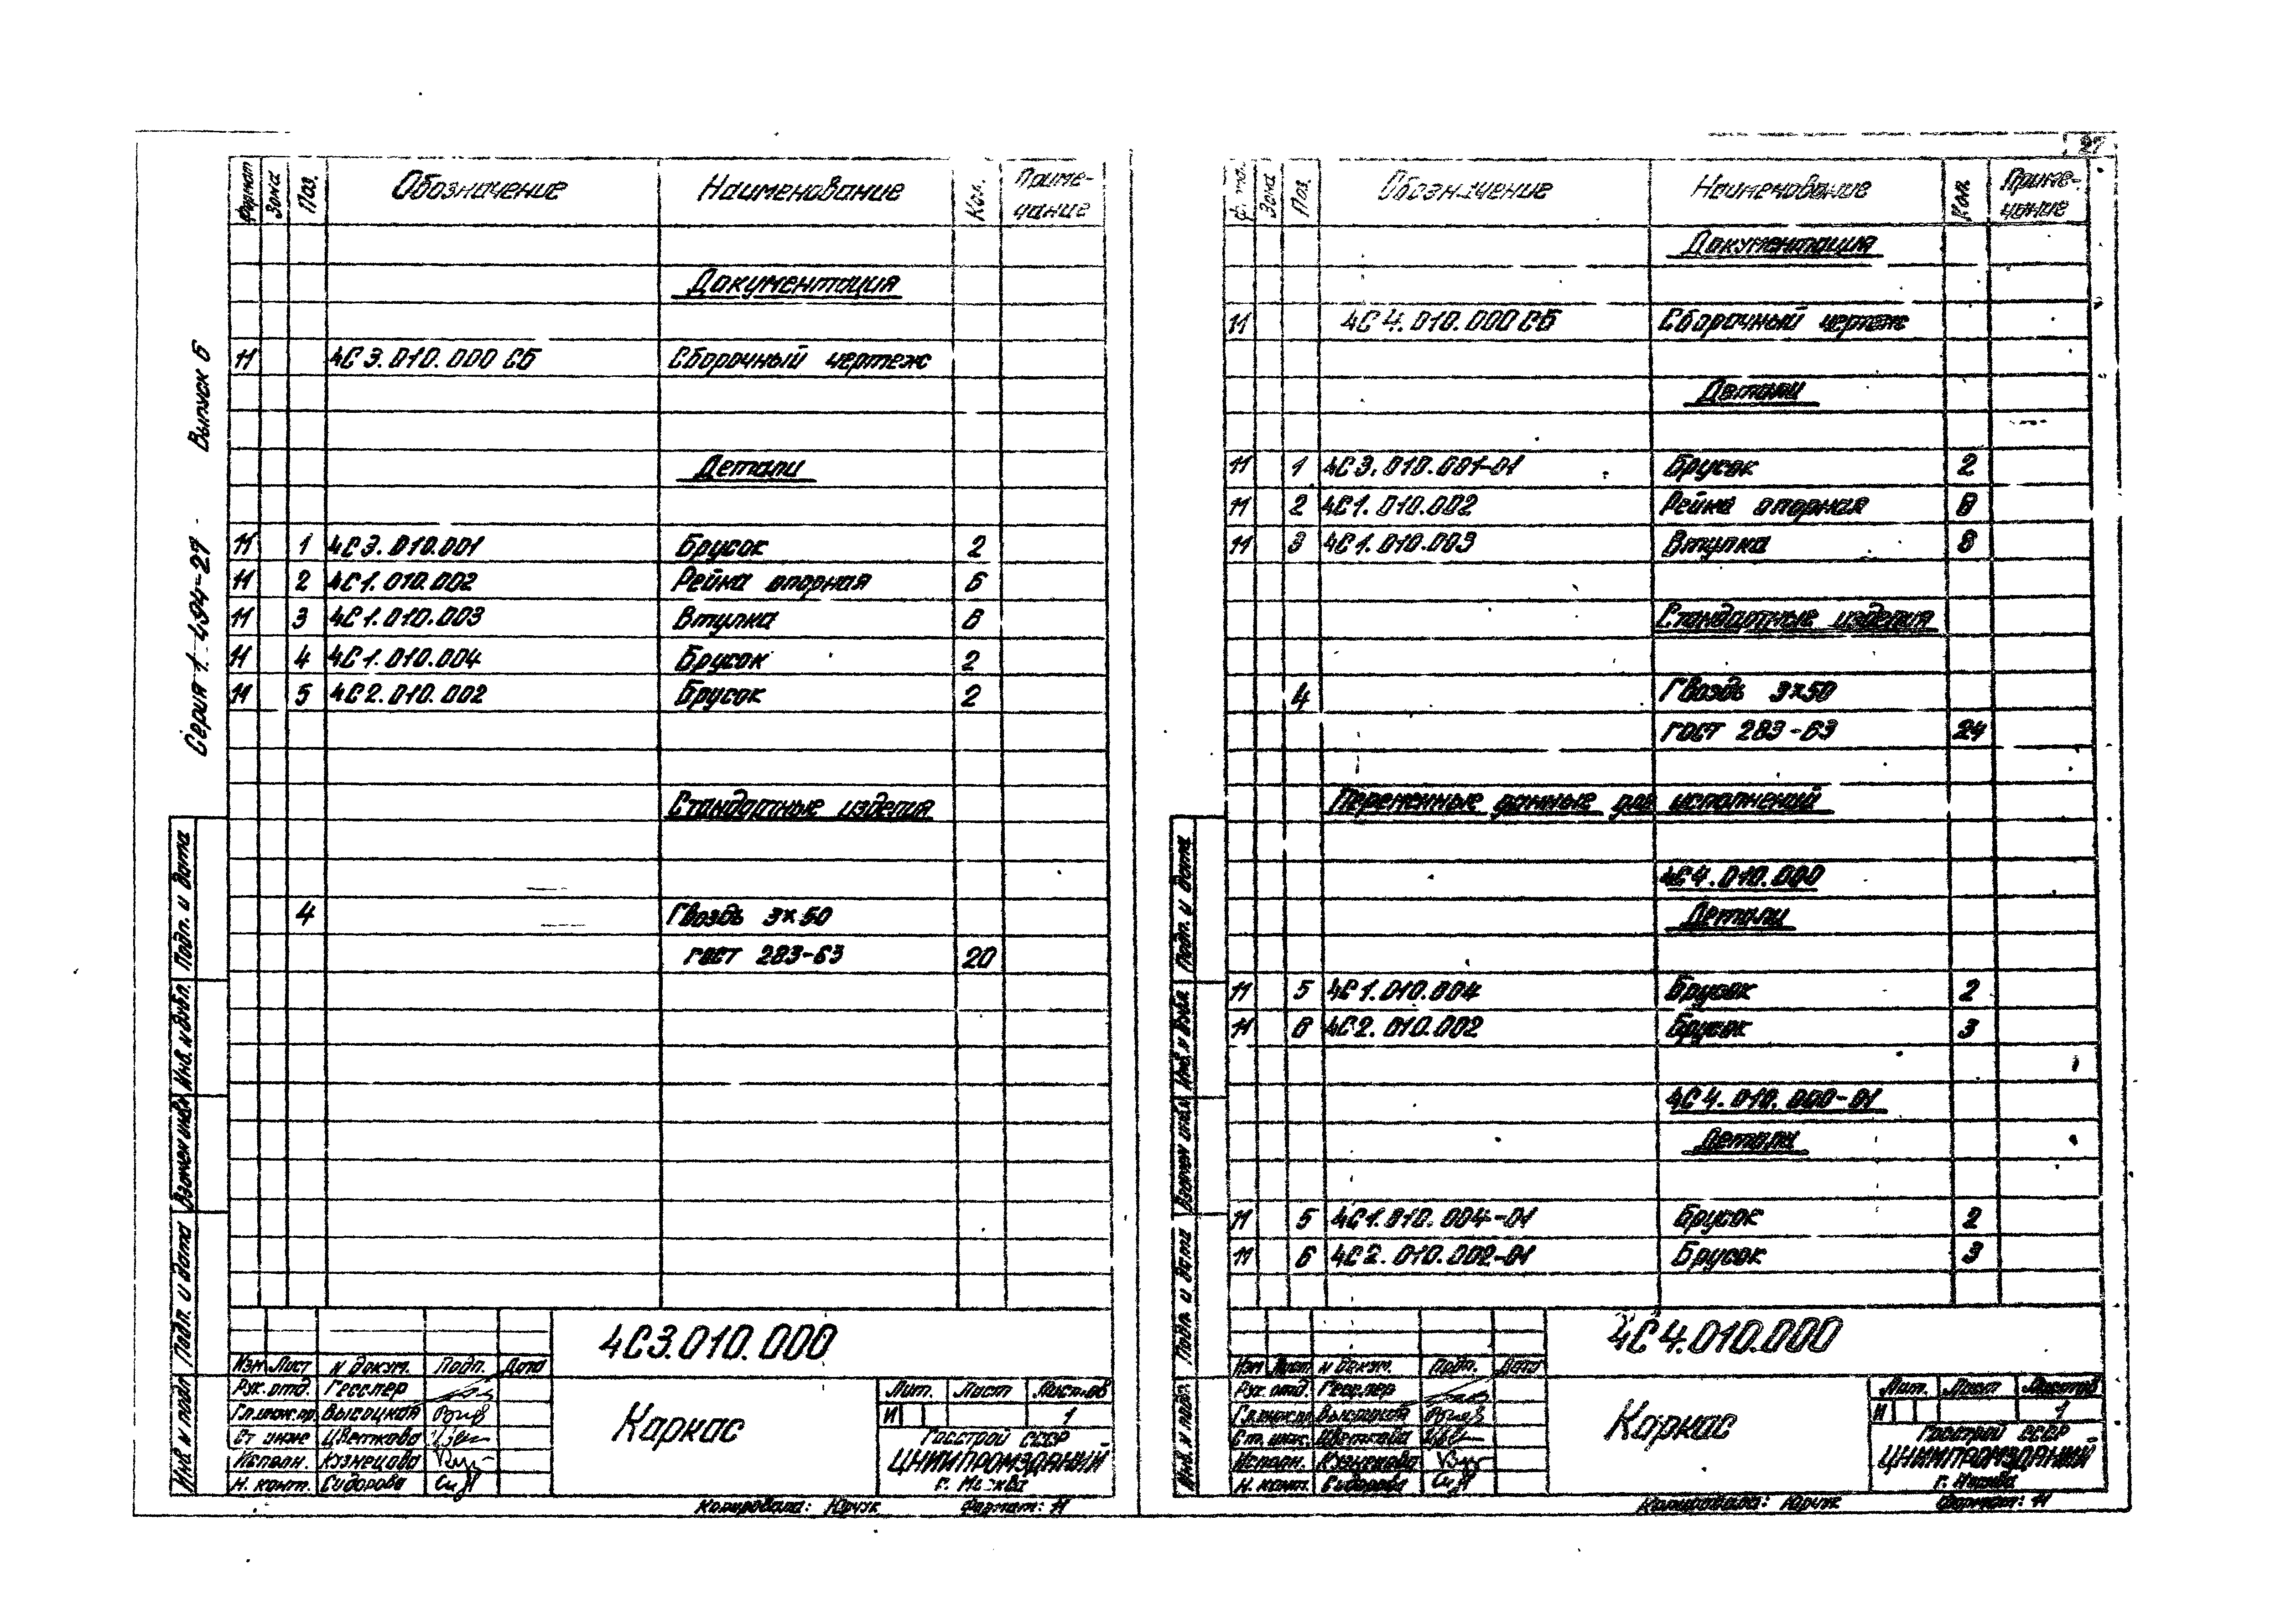 Серия 1.494-27 Выпуск 6
Формат Зона Поз. Обозначение Наименование Кол. Приме-
чание
Документация
11 4С3.010.000 СБ Сборочный чертеж
Детали
11 1 4С3.010.001 Брусок 2
11 2 4С1.010.002 Рейка опорная 6
11 3 4С1.010.003 Втулка 6
11 4 4С1.010.004 Брусок 2
11 5 4С2.010.002 Брусок 2
Стандартные изделия
4 Гвоздь 3×50
ГОСТ 283-63 20
Инв. № подл. Подп. и дата Взамен инв.№ Инв. № дубл. Подп. и дата
4С3.010.000
Изм Лист № докум. Подп. Дата
Рук. отд. Гесслер
Гл.инж.пр. Высоцкая
Ст. инж Цветкова
Исполн. Кузнецова
Н. конт. Сидорова
Каркас
Лит. Лист Листов
И 1
Госстрой СССР
ЦНИИПРОМЗДАНИЙ
г. Москва
Копировала: Юрчук Формат: 11
27
Зона Поз. Обозначение Наименование Кол. Приме-
чание
Документация
11 4С4.010.000 СБ Сборочный чертеж
Детали
11 1 4С3.010.001-01 Брусок 2
11 2 4С1.010.002 Рейка опорная 8
11 3 4С1.010.003 Втулка 8
Стандартные изделия
4 Гвоздь 3×50
ГОСТ 283-63 24
Переменные данные для исполнений
4С4.010.000
Детали
11 5 4С1.010.004 Брусок 2
11 6 4С2.010.002 Брусок 3
4С4.010.000-01
Детали
11 5 4С1.010.004-01 Брусок 2
11 6 4С2.010.002-01 Брусок 3
Инв. № подл. Подп. и дата Взамен инв.№ Инв. № дубл. Подп. и дата
4С4.010.000
Изм Лист № докум. Подп. Дата
Рук. отд. Гесслер
Гл.инж.пр. Высоцкая
Ст. инж. Цветкова
Исполн. Кузнецова
Н. конт. Сидорова
Каркас
Лит. Лист Листов
И 1
Госстрой СССР
ЦНИИПРОМЗДАНИЙ
г. Москва
Копировала: Юрчук Формат: 11